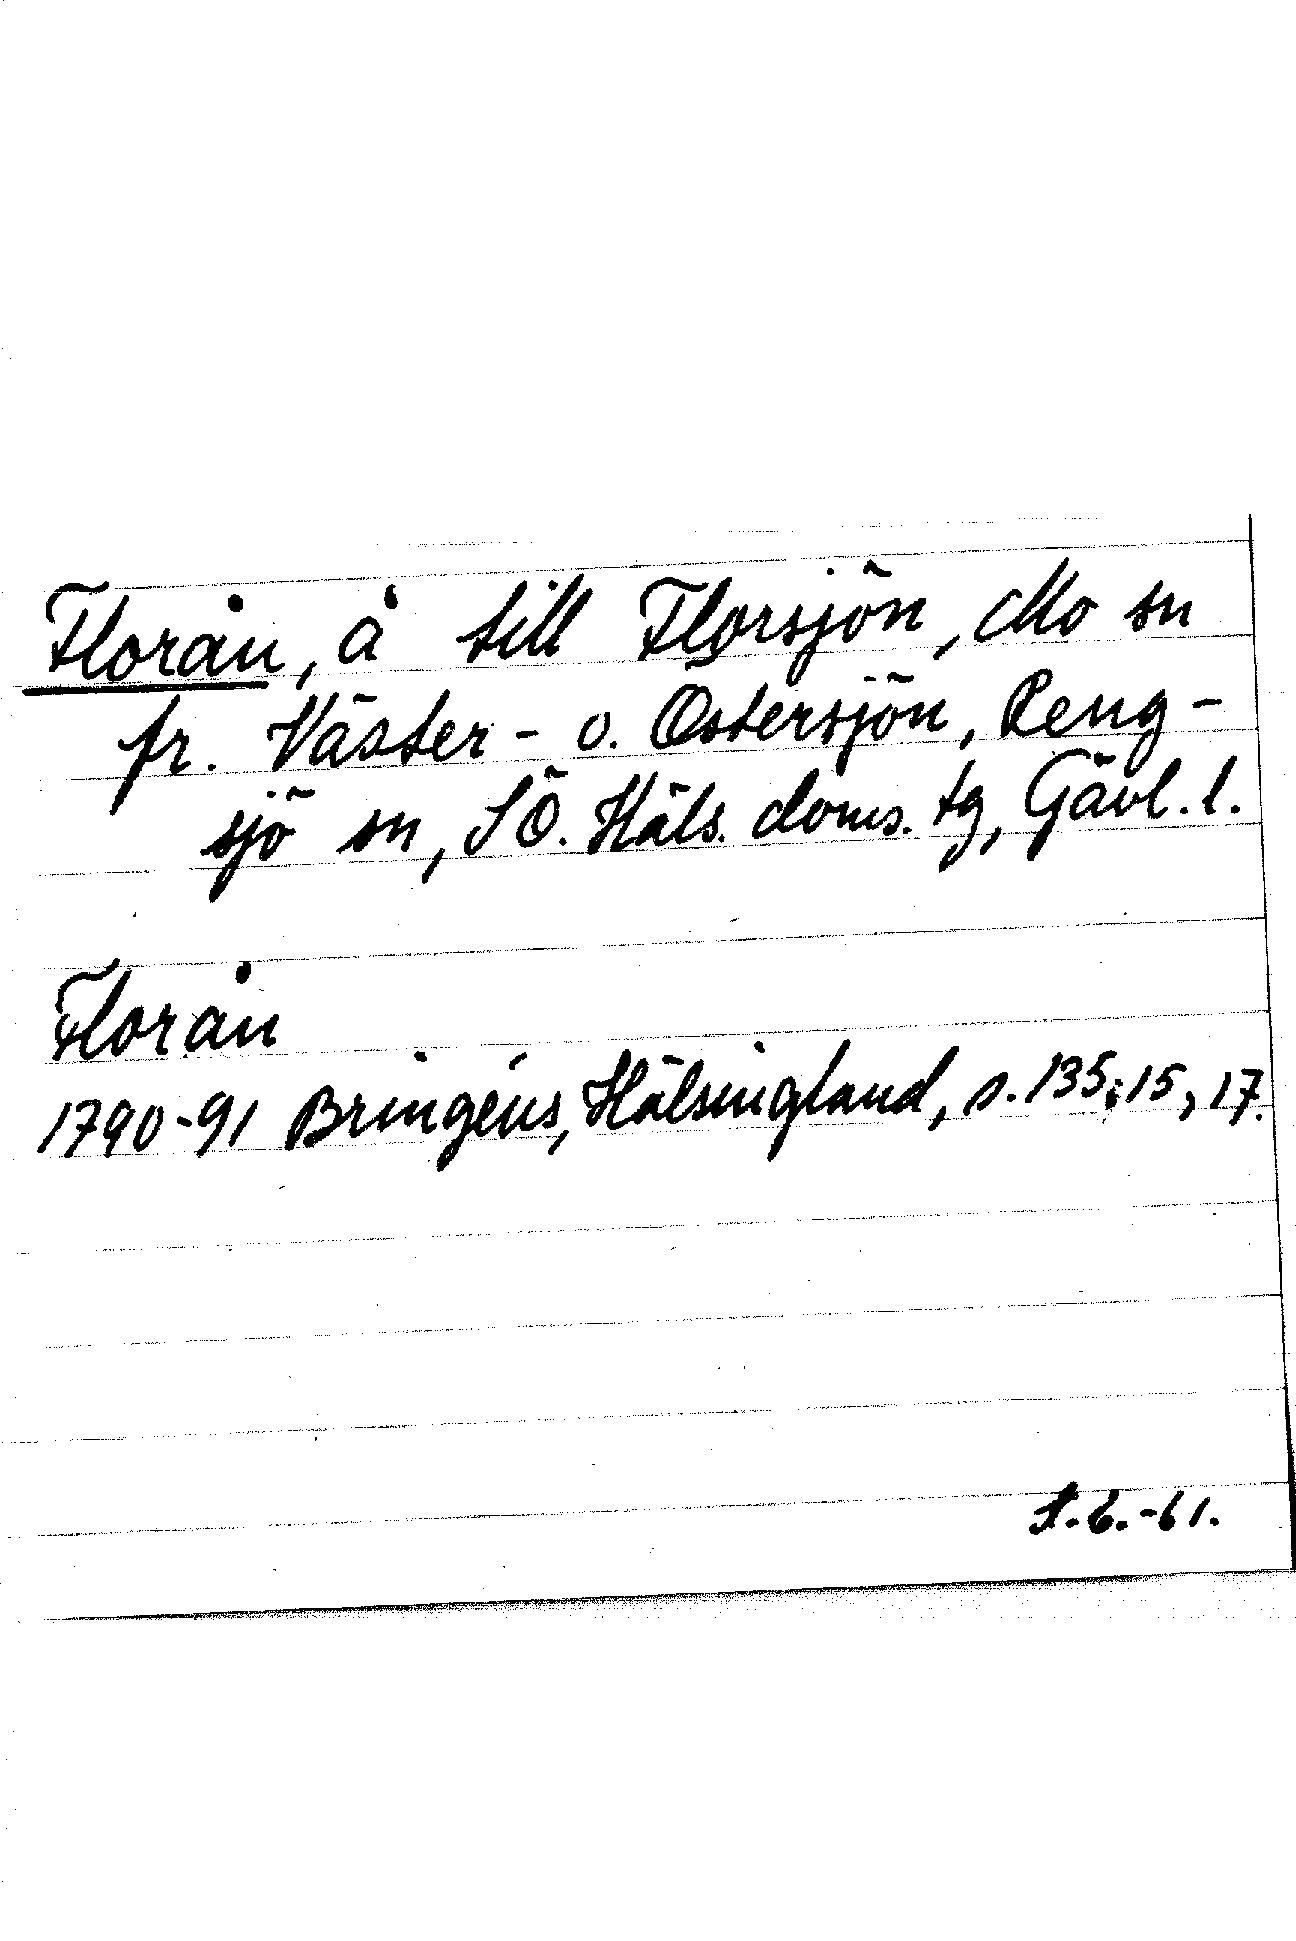 Florån, å till Florsjön, Mo sn
fr. Väster- o. Östersjön, Reng-
sjö sn, SÖ. Häls. doms. tg, Gävl. l.
Florån
1790-91 Bringéus, Hälsingland, s. 135:15, 17.
S.6.-61.